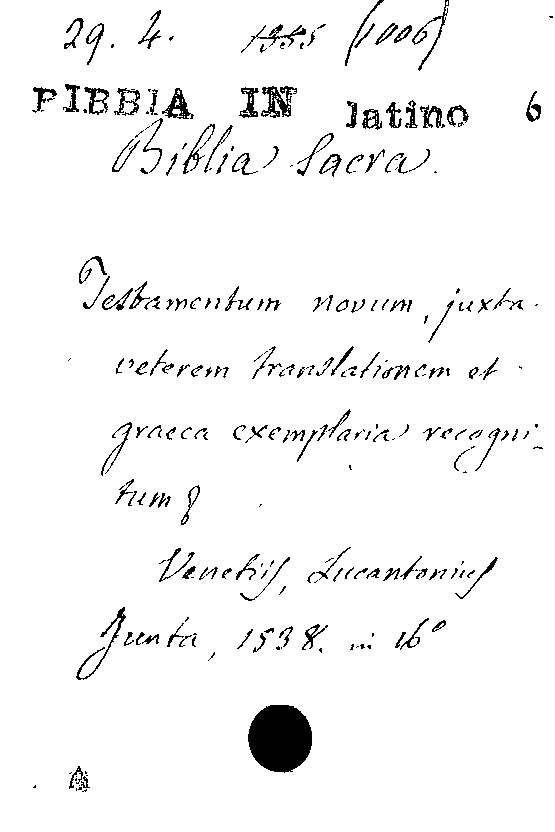 29. 4. 1355 (1006)
BIBBIA IN latino 6
Biblia Sacra.
Testamentum novum, juxta
veterem translationem et
graeca exemplaria recogni-
tum
Venetijs, Lucantonius
Junta, 1538. in 16º